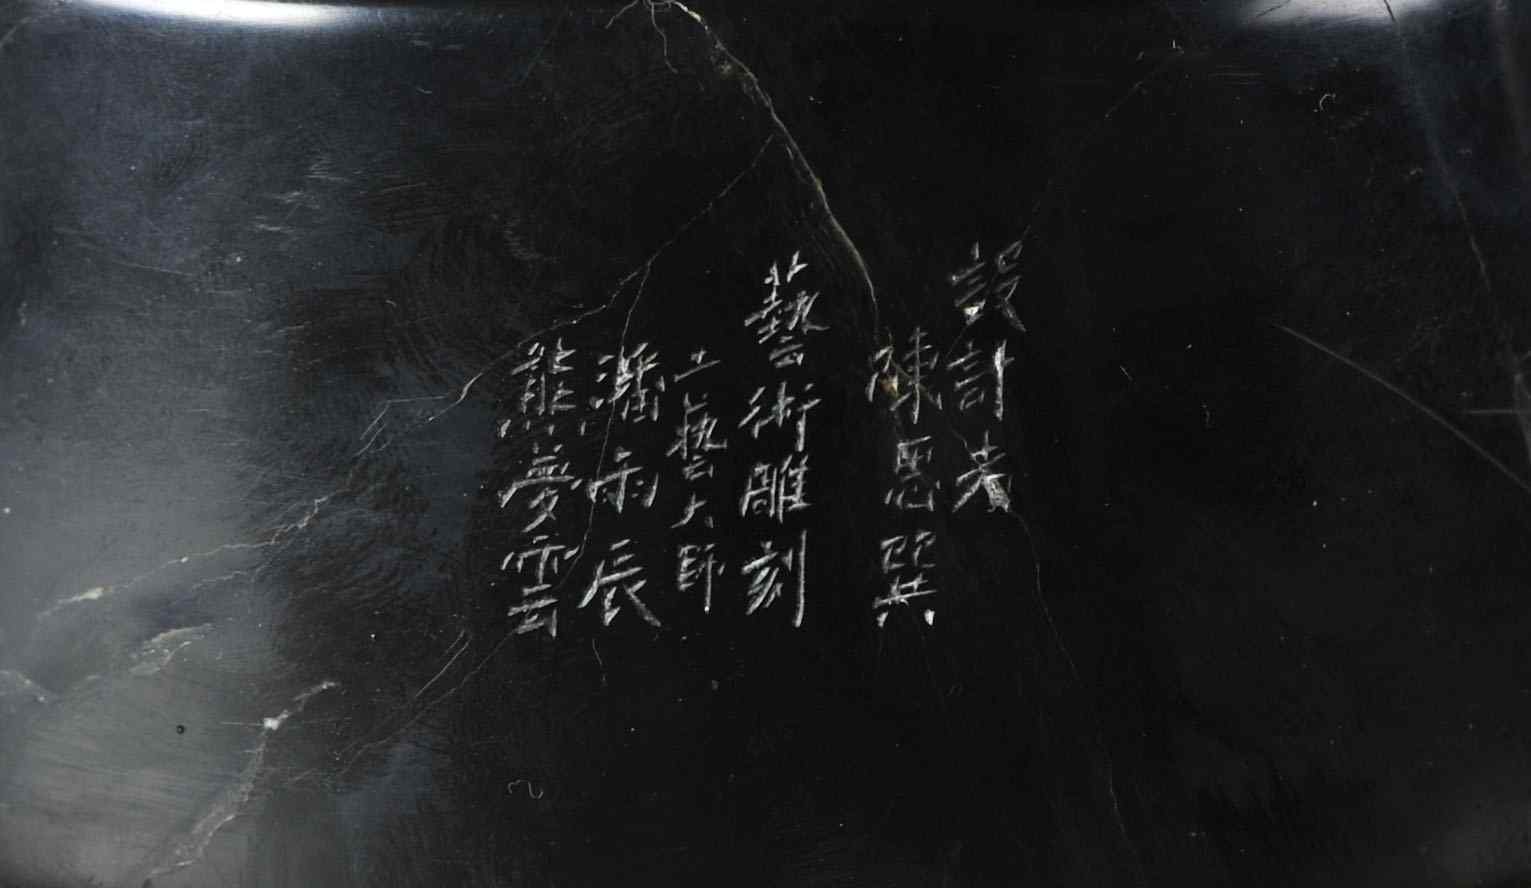 設計者
陳恩巽
藝術雕刻
工藝大師
潘雨辰
熊夢雲